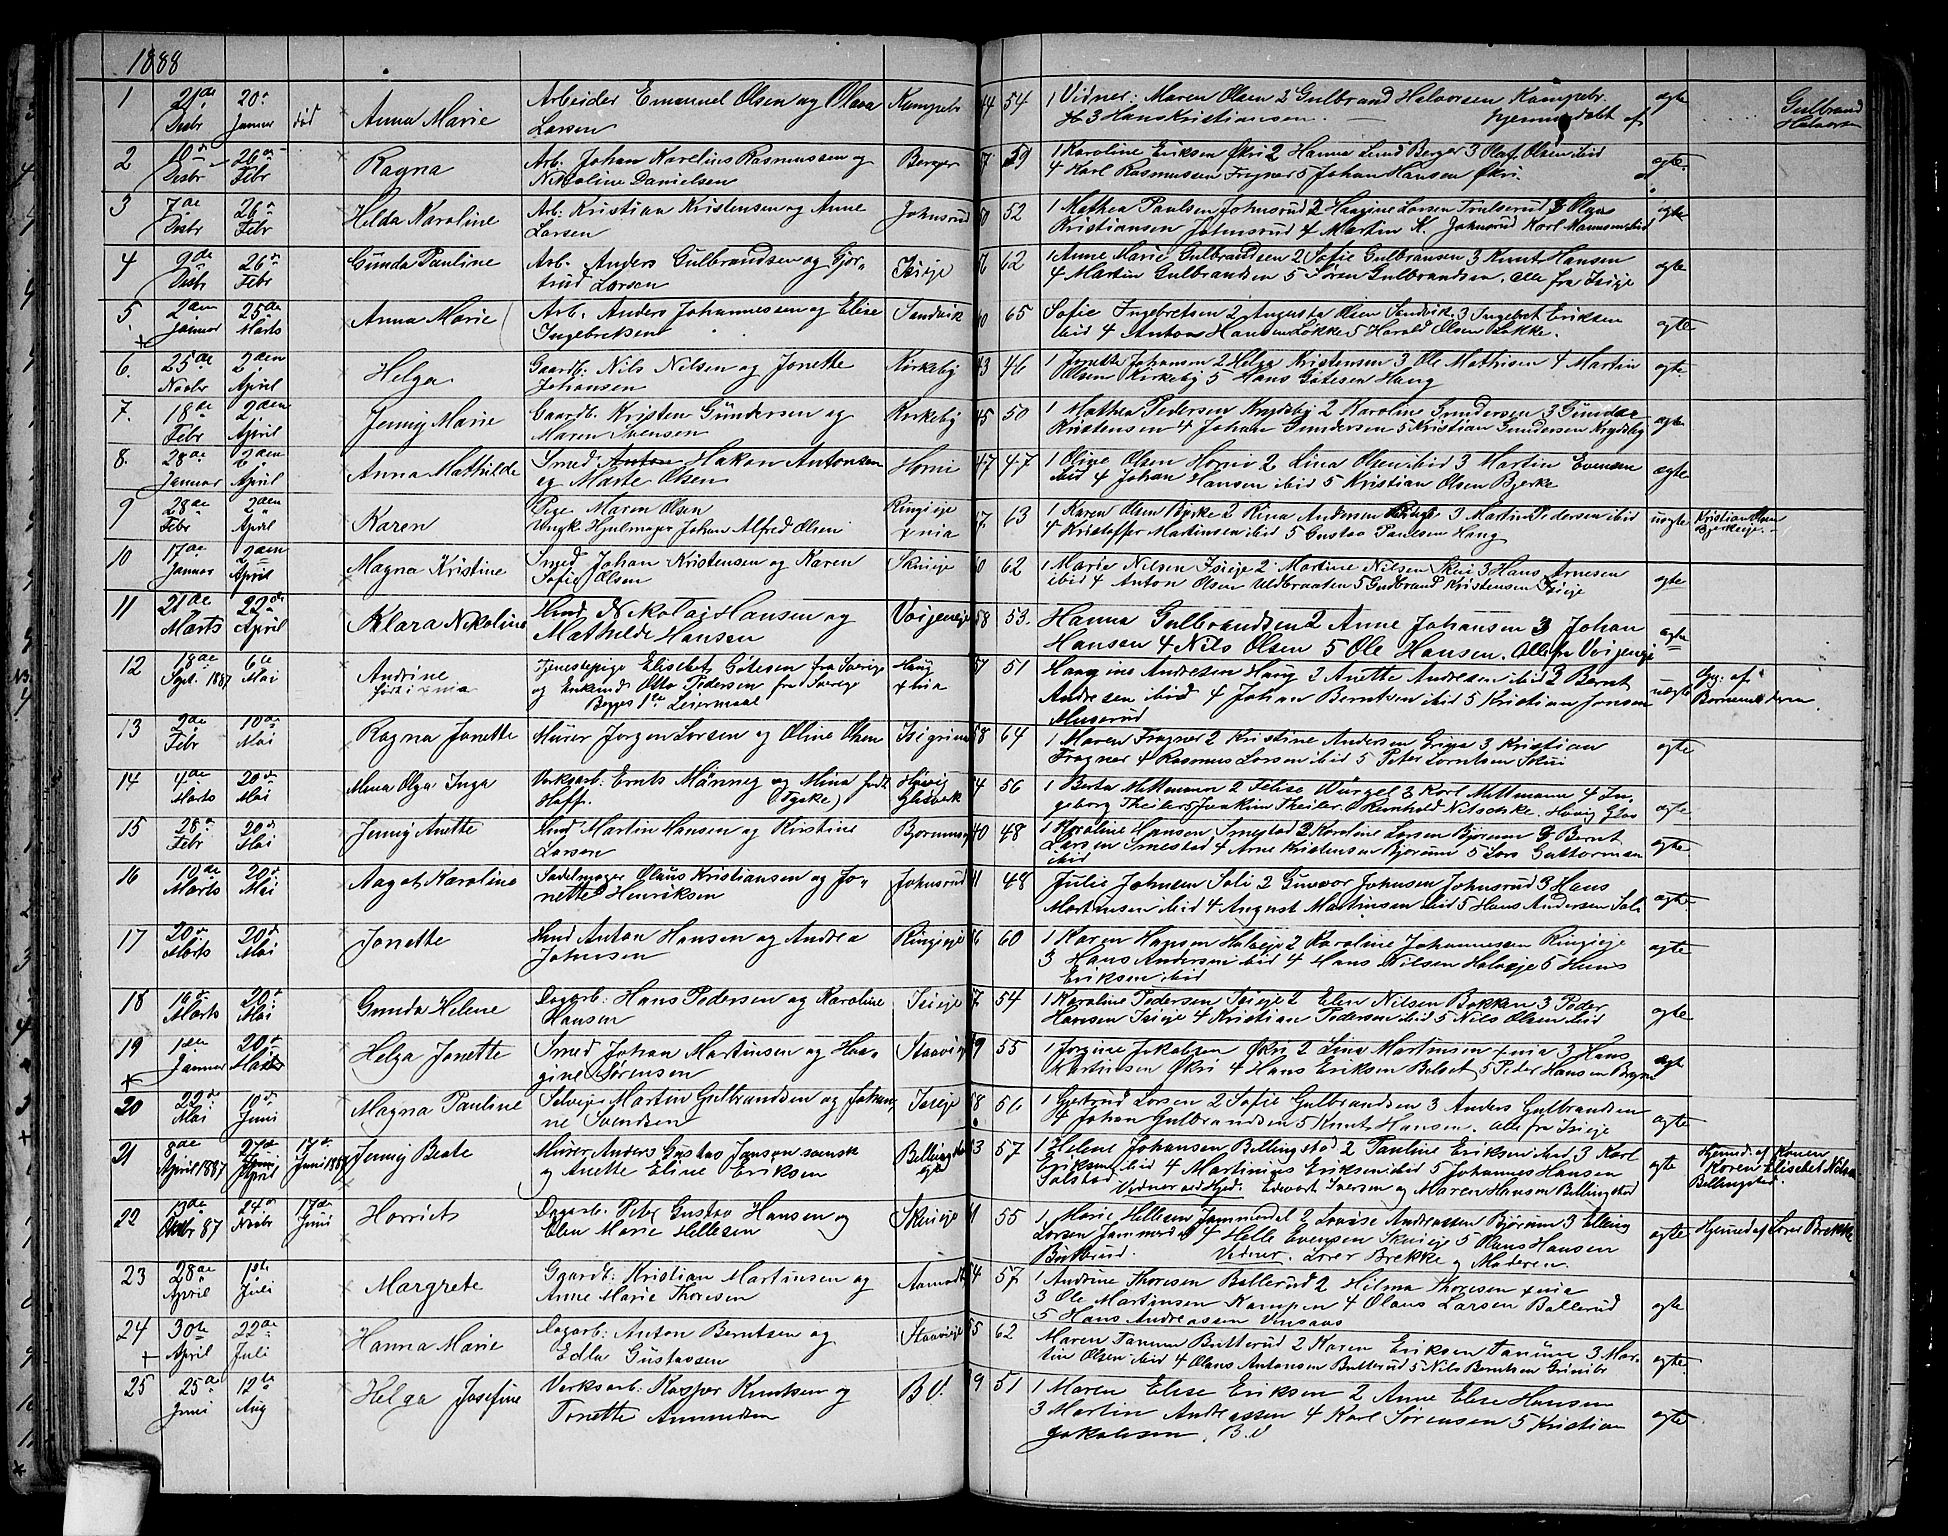 1888
1 21de Desbr 20de Januar død Anna Marie Arbeider Emanuel Olsen og Olava Larsen 54 1 Vidner: Maren Olsen 2 Gulbrand Halvorsen
3 Hans Kristiansen. hjemmedøbt af ægte Gulbrand Halvorsen
2 10de Desbr 26de Febr Ragna Arb. Johan Karelius Rasmussen og Nicoline Danielsen Berger 59 1 Karoline Eriksen Økri 2 Hanna Lund Berger 3 Olaf Olsen ibid
4 Karl Rasmussen Fragner 5 Johan Hansen Økri. ægte
3 7de Desbr 26de Febr Helda Karoline Arb. Kristian Kristensen og Anne Larsen Johnsrud 52 1 Mathea Paulsen Johnsrud 2 Haagine Larsen 3 Olaus
Kristiansen Johnsrud 4 Martin K. Johnsrud ægte
4 9de Desbr 26de Febr Gunda Pauline Arb. Anders Gulbrandsen og Gjertrud Larsen Isieje 62 1 Anne Marie Gulbrandsen 2 Sofie Gulbransen 3 Knut Hansen
4 Martin Gulbrandsen 5 Søren Gulbrandsen. alle fra Isieje ægte
5 2den Januar 25de Marts Anna Marie Arb. Anders Johannessen og Elise Ingebretsen Sandvik 65 Sofie Ingebretsen 2 Augusta Olsen Sandvik 3 Ingebret Eriksen
ibid 4 Anton Hansen Løkke 5 Harald Olsen Løkke. ægte
6. 25de Novbr 2den April Helga Gaardb. Nils Nilsen og Jonette Johansen Kirkeby 46 1 Jonette Johansen 2 Helga Kristensen 3 Ole Mathisen 4 Martin
Olsen Kirkeby 5 Hans Gøtesen Haug ægte
7. 18de Febr 2den April Jenny Marie Gaardb. Kristen Gundersen og Maren Svensen Kirkeby 45 50 1 Mathea Pedersen 2 Karoline Gundersen 3 Gunda
Kristensen 4 Johan Gundersen 5 Kristian Gundersen ægte
8. 28de Januar 2den April Anna Mathilde Smed Hakon Antonsen og Marte Olsen Horni 47 47 1 Oline Olsen Horni 2 Lina Olsen ibid 3 Martin Evensen
ibid 4 Johan Hansen ibid 5 Kristian Olsen Bjerke ægte
9 28de Febr 2den April Karen Pige Maren Olsen
Ungk. Hjulmager Johan Alfred Olsen Ringieje 63 1 Karen Olsen Bjerke 2 Lina Andersen Ringi 3 Martin Pedersen ibid
4 Kristoffer Martinsen ibid 5 Gustav Paulsen Haug uægte Kristian Olsen Bjerkeeje.
10 17de Januar 2den April Magna Kristine Smed Johan Kristensen og Karen Sofie Olsen Skuieje 62 1 Marie Nilsen Isieje 2 Martine Nilsen Skui 3 Hans Arnesen
ibid 4 Anton Olsen Uldbraaten 5 Gudbrand Kristensen Isieje ægte
11 21de Marts 22de April Klara Nikoline Hmd Nikolai Hansen og Mathilde Hansen Vøijeneje 58 53. Hanna Gulbrandsen 2 Anne Johansen 3 Johan
Hansen 4 Nils Olsen 5 Ole Hansen. Alle fra Vøijeneje ægte
12 18de Sept. 1887 6te Mai Andrine Tjenestepige Elisebet Gøtesen fra Sverige
og Enkemd. Otto Pedersen fra Sverige
Begges 1ste Leiermaal Haug 51 Haagine Andresen Haug 2 Anette Andresen ibid 3 Bernt
Andresen ibid 4 Johan Berntsen ibid 5 Kristian Jonsen
Muserud uægte
13 2de Febr 10de Mai Ragna Jonette Murer Jørgen Larsen og Oline Olsen Isigrina 58 64 1 Maren Fragner 2 Kristine Andersen Grina 3 Kristian
Fragner 4 Rasmus Larsen ibid 5 Peter Lorntsen Skui ægte
14 4de Marts 20de Mai Mina Olga Inga og Mina født Hoff. (Tyske) Høvig Glasverk 56 1 Berta Mittmann 2 Felise Würgel 3 Karl Mittmann 4 Ingeborg Theiler 5 Joakim Theiler. Reinhold Nitschke. Høvig Glas ægte
15 28de Febr 20de Mai Jenny Anette Hmd Martin Hansen og Kirstine Larsen 40 48 1 Karoline Hansen Smestad 2 Karoline Larsen Bjørum 3 Bernt
Larsen Smestad 4 Arne Kristensen Bjørum 5 Lars Guttormsen
ibid ægte
16 10de Marts 20de Mai Aagot Karoline Sadelmager Olaus Kristiansen og Jonette Henriksen Johnsrud 48 Julie Johnsen Soli 2 Gunvor Johnsen Johnsrud 3 Hans
Martinsen ibid 4 August Martinsen ibid 5 Hans Andersen Soli ægte
17 20de Marts 20de Mai Jonette Hmd Anton Hansen og Andrea Johnsen Ringieje 60 1 Karen Hansen 2 Karoline Johannessen Ringieje
3 Hans Andersen ibid 4 Hans Nilsen 5 Hans
Eriksen ibid ægte
18 16de Marts 20de Mai Gunda Helene Dagarb. Hans Pedersen og Karoline Hansen Isieje 54 1 Karoline Pedersen Isieje 2 Elen Nilsen Bakken 3 Peder
Hansen Isieje 4 Kristian Pedersen ibid 5 Nils Olsen ibid ægte
19 1ste Januar 20de Helga Jonette Smed Johan Martinsen og Haagine Sørensen 55 1 Jørgine Jakobsen Økri 2 Lina Martinsen 3 Hans
Martinsen Økri 4 Hans Eriksen Belset 5 Peder Hansen ægte
20 22de Mai 10de Juni Magna Pauline Selveier Martin Gulbrandsen og Johanne Svendsen Isieje 56 1 Gjertrud Larsen 2 Sofie Gulbrandsen 3 Anders Gulbrandsen
4 Johan Gulbrandsen 5 Knut Hansen. alle fra Isieje ægte
21 8de April 1887 April 17de Juni 1887 Jenny Beate Murer Anders Gustav Jansen svensk
og Anette Eline Eriksen Bellingstad 57 1 Helene Johansen Bellingstad 2 Pauline Eriksen ibid 3 Karl
Eriksen ibid 4 Martinius Eriksen ibid 5 Johannes Hansen
Solstad. Vidner ved Hjd. Edvart Iversen og Maren Hansen Bellingstad ægte Hjemd. af Konen Karen Elisebet Nilsen Bellingstad.
22 87 24de Novbr 17de Juni Harriets Dagarb. Peter Gustav Hansen og
Elen Marie Hellesen Skuieje 55 1 Marie Hellesen Jammerdal 2 Lovise Andreassen Bjørum 3 Elling
Larsen Jammerdal 4 Helle Evensen Skuieje 5 Olaus Hansen
Vidner. Lærer Brekke og Moderen. ægte Hjemmed af Lærer Brekke
23 28de April 1ste Juli Margrete Gaardb. Kristian Martinsen og
Anne Marie Thoresen 57 1 Andrine Thoresen Ballerud 2 Hilma Thoresen
3 Ole Martinsen Kampen 4 Olaus Larsen Ballerud
5 Hans Andreassen ægte
24 30te April 22de Juli Hanna Marie Dagarb. Anton Berntsen og
Edla Gustassen 62 Maren Tanum Butterud 2 Karen Eriksen Tanum 3 Martin Olsen ibid 4 Olaus Antonsen Butterud 5 Nils Berntsen ægte
25 25de Juni 12te Aug Helga Josefine Verksarb. Kasper Knutsen og
Tonette Amundsen B.V. 51 1 Maren Elise Eriksen 2 Anne Elise Hansen
3 Martin Andreassen 4 Karl Sørensen 5 Kristian
Jakobsen. B.V ægte